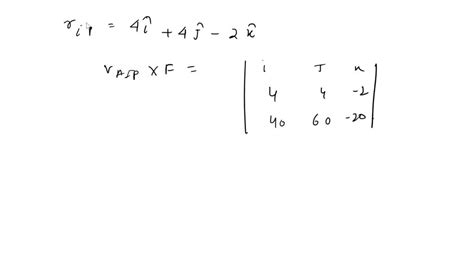 r_{iP} = 4î + 4ĵ - 2k̂
r_{A/P} × F = | i J k |
| 4 4 -2 |
| 40 60 -20 |